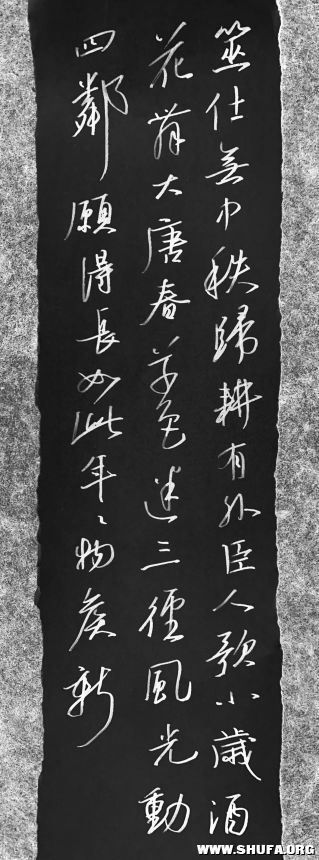 筮仕無中秩歸耕有外臣人歌小歲酒
花舞大唐春草色迷三徑風光動
四鄰願得長如此年〻物候新
WWW.SHUFA.ORG